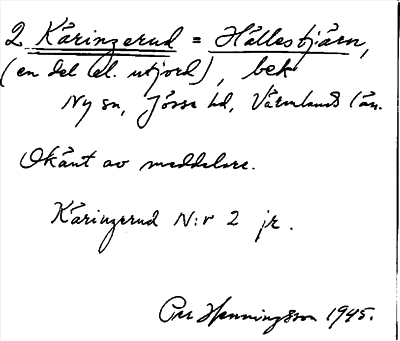 2 Käringerud = Hällestjärn,
(en del el. utjord), bek
Ny sn, Jösse hd, Värmlands län.
Okänt av meddelare.
Käringerud N:r 2 jr.
Per Henningsson 1945.